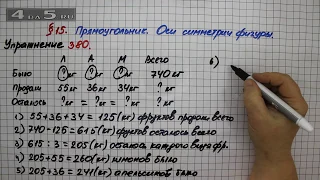 4APS.RU
§15. Прямоугольник. Оси симметрии фигуры.
Упражнение 380.
Л А М Всего
Было ?кг ?кг ?кг 740кг
Продали 55кг 36кг 34кг ?кг
Осталось ?кг = ?кг = ?кг ?кг
1) 55+36+34=125(кг) фруктов продали всего
2) 740-125=615(кг) фруктов осталось всего
3) 615:3=205(кг) осталось каждого вида фр.
4) 205+55=260(кг) лимонов было
5) 205+36=241(кг) апельсинов было
6)